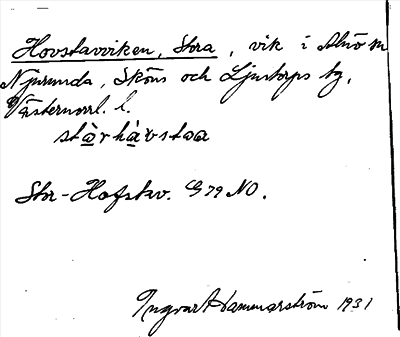 Hovstavviken, Stora, vik i Alnö sn
Njurunda, Sköns och Ljustorps tg,
Västernorrl. l.
stàrhàvstaa
Stor-Hofstav. G 79 NO.
Ingvar Hammarström 1931